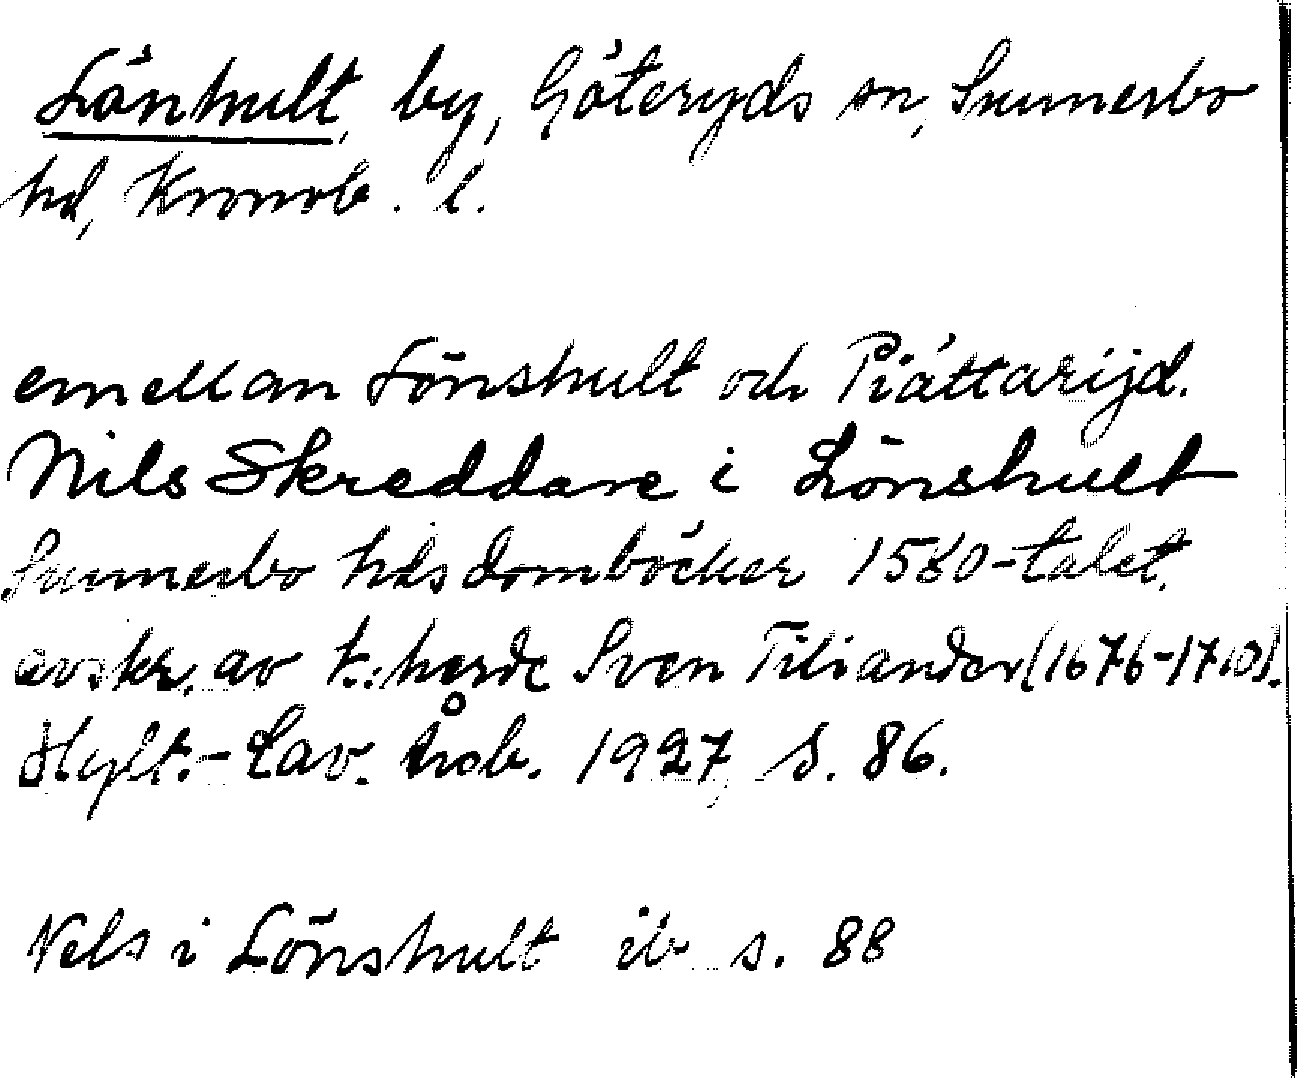 Lönhult, by, Göteryds sn, Sunnerbo
hd, Kronob. l.
emellan Lönshult och Piättarijd.
Nils Skreddare i Lönshult
Sunnerbo hds domböcker 1580-talet,
avskr. av k:herde Sven Tiliander (1676-1710).
Hylt.-Cav. årsb. 1927, s. 86.
Nels i Lönshult ib s. 88